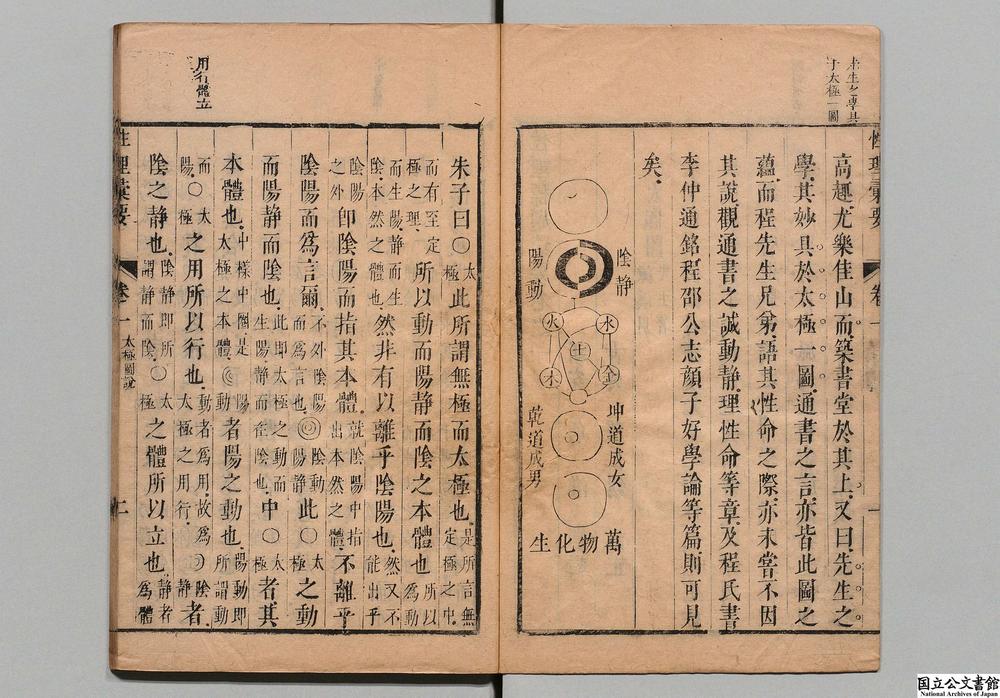 于太極一圖
性理彙要 卷一 一
高趣尤樂佳山而築書堂於其上又曰先生之
學其妙具於太極一圖通書之言亦皆此圖之
蘊而程先生兄弟語其性命之際亦未嘗不因
其說觀通書之誠動靜理性命等章及程氏書
李仲通銘程邵公志顔子好學論等篇則可見
矣
陰靜
陽動
水
火
土
金
木
坤道成女
乾道成男
萬物化生
朱子曰○太極此所謂無極而太極也是所言無定極之中
而有至定極之理所以動而陽靜而陰之本體也所以為動
而生陽靜而生陰本然之體也然非有以離乎陰陽也然又不能出乎
陰陽之外即陰陽而指其本體就陰陽中指出本然之體不離乎
陰陽而爲言爾不外陰陽而為言也◎陰動陽靜此○太極之動
而陽靜而陰也此即太極之動而生陽靜而生陰也中○太極者其
本體也中樣中圈是太極之本體◎者陽之動也陽動即所謂動
而陽○太極之用所以行也動者為用故為太極之用行者
陰之靜也陰靜即所謂靜而陰○太極之體所以立也靜者為體
用行體立
性理彙要 卷一 太極圖說 二
国立公文書館
National Archives of Japan